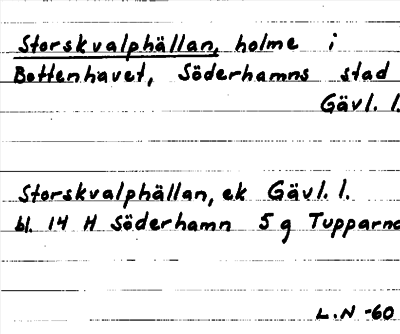 Storskvalphällan, holme i
Bottenhavet, Söderhamns stad
Gävl. l.
Storskvalphällan, ek Gävl. l.
bl. 14 H Söderhamn 5 g Tupparna
L.N -60